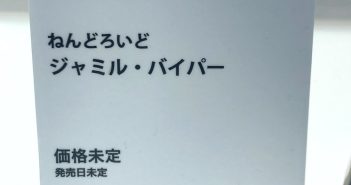 ねんどろいど
ジャミル・バイパー
価格未定
発売日未定